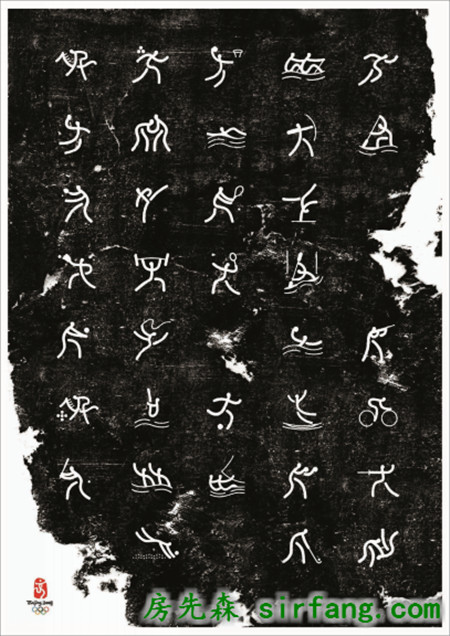 Beijing 2008
房先森 sirfang.com